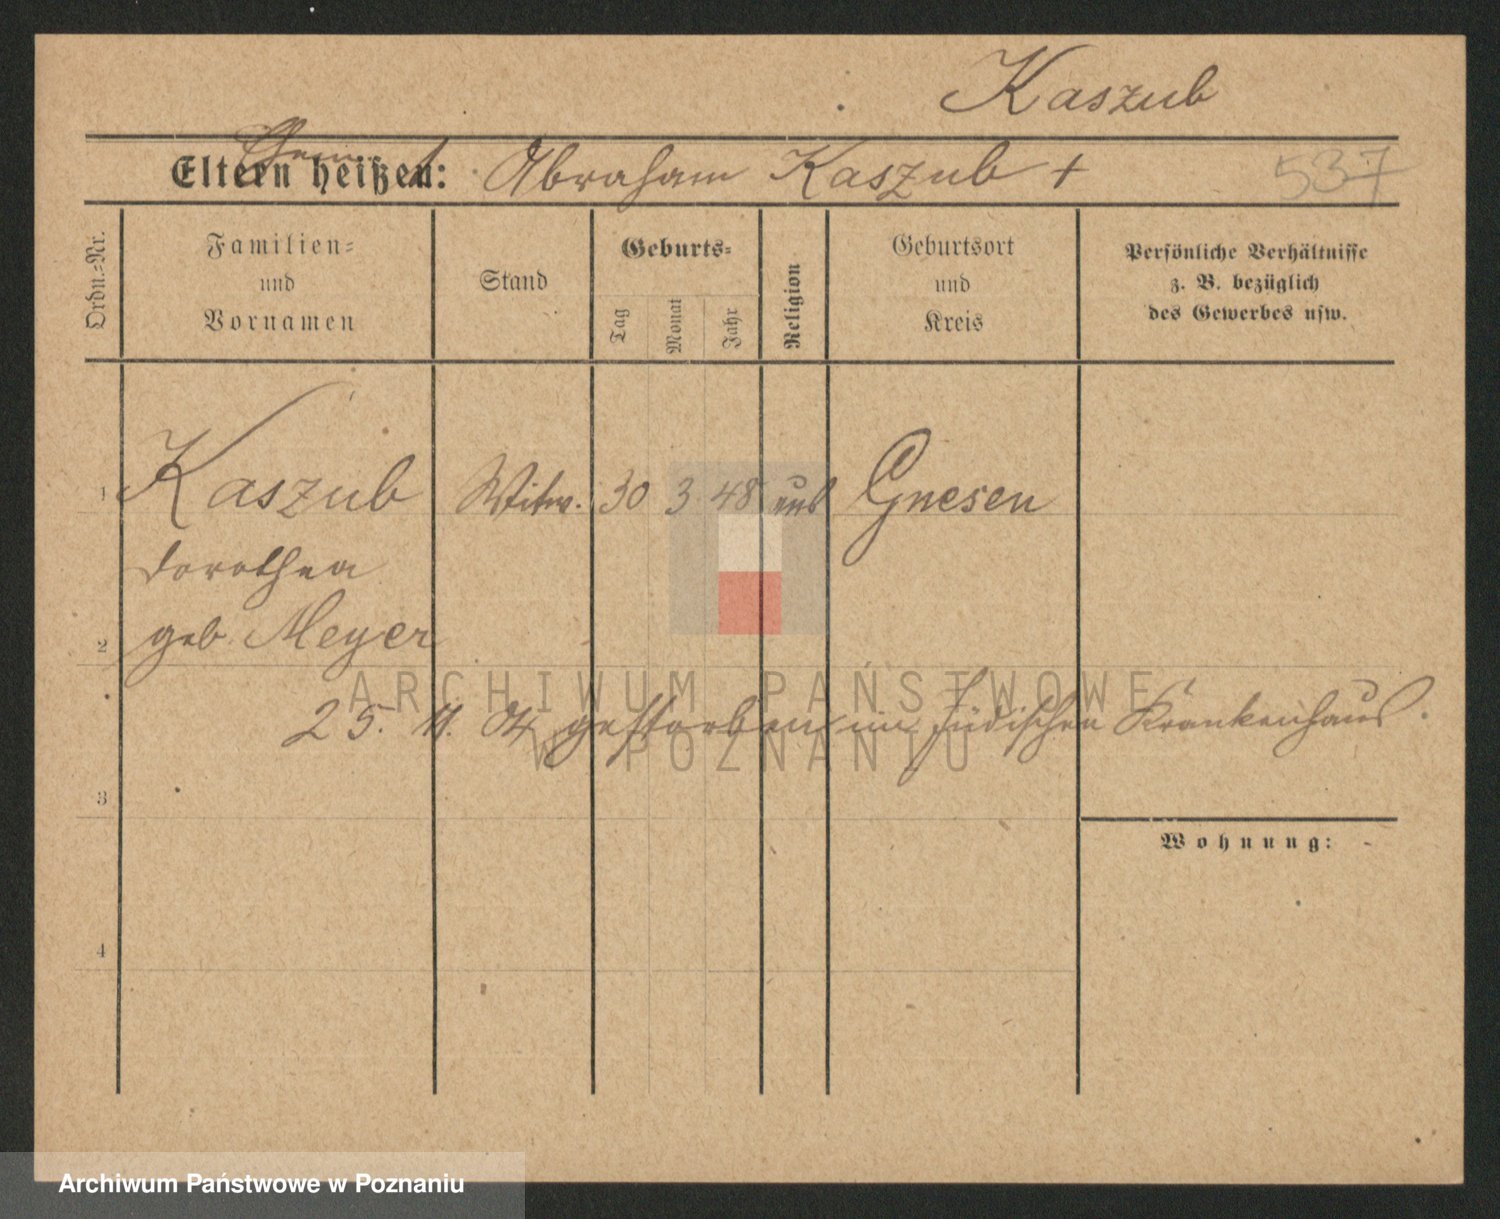 Kaszub
Eltern heißen: Abraham Kaszub +
537
Ordn.=Nr.
Familien=
und
Vornamen
Stand
Geburts=
Tag
Monat
Jahr
Religion
Geburtsort
und
Kreis
Persönliche Verhältnisse
z. B. bezüglich
des Gewerbes usw.
1 Kaszub Witw. 30 3 48 Gnesen
Dorothea
2 geb. Meyer
25. 11. 04 gestorben im jüdischen Krankenhaus.
3
Wohnung:
4
ARCHIWUM PAŃSTWOWE
W POZNANIU
Archiwum Państwowe w Poznaniu